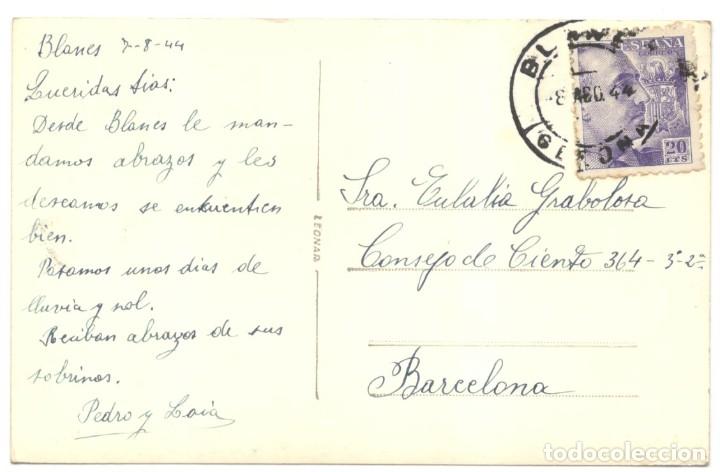 Blanes 7-8-44
Queridas tias:
Desde Blanes le man-
damos abrazos y les
deseamos se enkuentren
bien.
Pasamos unos dias de
lluvia y sol.
Reciban abrazos de sus
sobrinos.
Pedro y
LEONAR
BLAN
-8 AGO. 44
GERONA
ESPAÑA
CORREOS
20
CTS
Sra. Eulalia Grabolosa
Consejo de Ciento 364-3º-2ª
Barcelona
todocoleccion.net